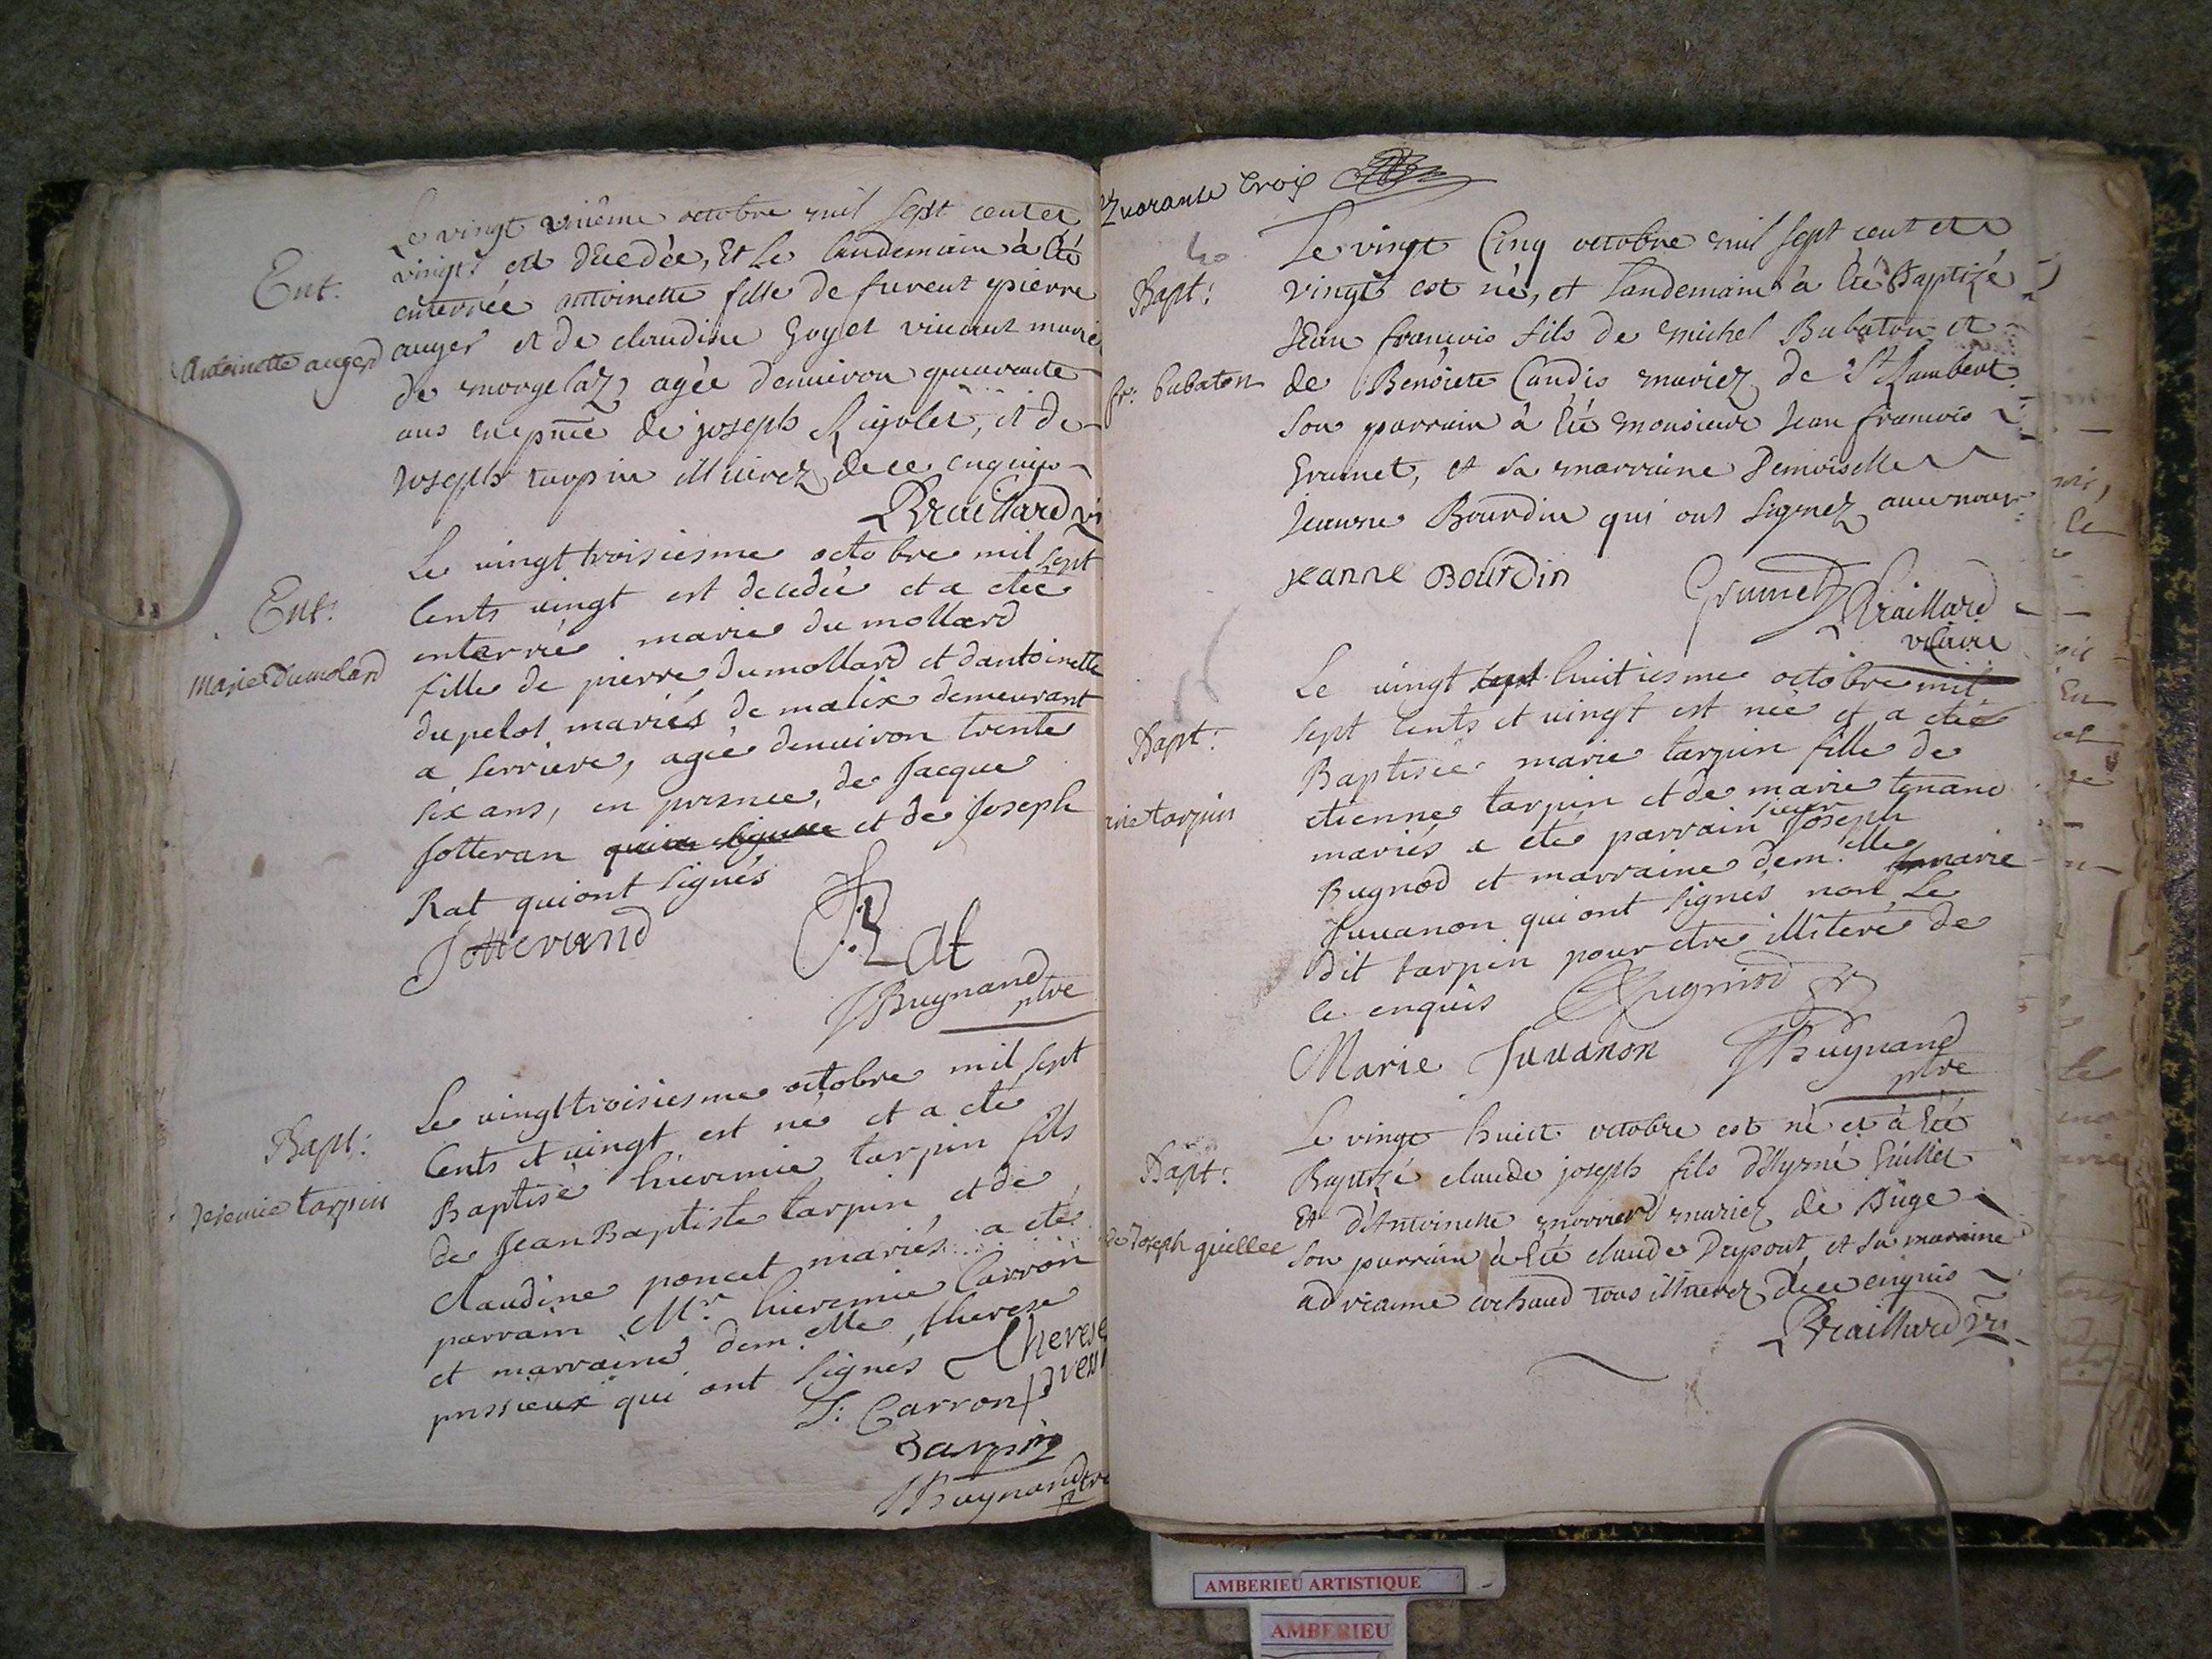 Le vingt unième octobre mil sept cent et
vingt est décedée, Et Le landemain à été
enterrée antoinette fille de furent pierre
auger et de claudine Goyet vivant mariez
de morgelaz, agée denuiron quarante
ans en pnce de joseph Rigolet, et de
joseph tarpin illiterez de ce enquis
Ent.
Antoinette auger
Braillard vi
Le vingt troisiesme octobre mil sept
Cents vingt est decedée et a etée
enterrée marie du mollard
fille de pierre dumollard et dantoinette
dupelot mariés de malix demeurant
a serriere, agée denuiron trente
six ans, en presence, de Jacque
Jotteran et de Joseph
Rat qui ont signés
Ent:
marie Dumolard
Jotterand
J. Rat
JBuynand
ptre
Le vingt troisiesme octobre mil sept
Cents et vingt est né et a eté
Baptisé hieremie tarpin fils
de Jean Baptiste tarpin, et de
Claudine poncet mariés a eté
parrain Mr. hieremie Carron
et marraine dem.elle therese
pressieux qui ont signés
Bapt:
Jeremie tarpin
Therese
press
J: Carron
Tarpin
JBuynand ptre
Quarante troix
Le vingt Cinq octobre mil sept cent et
vingt est né, et landemain à été Baptizé
Jean francois fils de michel Bubaton et
de Benoiete Candis mariez de St Rambert
Son parrain à été monsieur Jean francois
Grumet, et sa marraine Demoiselle
Jeanne Bourdin qui ont signez avec nous
Bapt:
fr: bubaton
Jeanne Bourdin
Grumet
Braillard
vicaire
Le vingt sept huitiesme octobre mil
sept Cents et vingt est neé et a etée
Baptisée marie tarpin fille de
etienne tarpin et de marie tenand
mariés a eté parrain sieur Joseph
Bugnod et marraine dem.elle marie
Juuanon qui ont signés non Le
dit tarpin pour etre illiteré de
ce enquis
Bapt:
rie tarpin
Bugniod
Marie Juuanon
JBuynand
ptre
Le vingt huict octobre est né et à été
Baptizé claude joseph fils d'Aymé Guillet
Et d'Antoinette marier mariez de Buge
Son parrain à été claude Dupont, et sa maraine
adrianne cochaud tous illiterez de ce enquis
Bapt:
de Joseph guillee
Braillard vi
AMBERIEU ARTISTIQUE
AMBERIEU